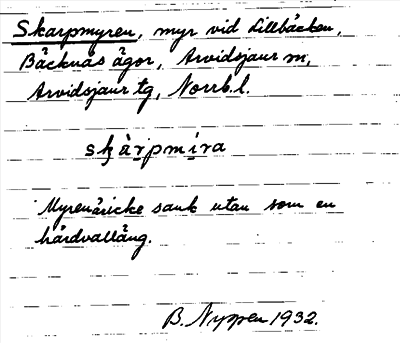 Skarpmyren, myr vid Lillbäcken,
Bäcknäs ägor, Arvidsjaur sn,
Arvidsjaur tg, Norrb. l.
skàrpmíra
Myren är icke sank utan som en
hårdvalläng.
B. Nyppen 1932.